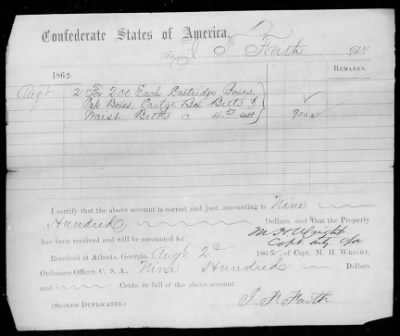 Confederate States of America,
To J. F. Faith Dr.
1862. REMARKS.
Augt 2 For 200 Each Cartridge Boxes,
Cap Boxes Cartge Box Belts &
Waist Belts @ 4.50 sett 900 00
I certify that the above account is correct and just, amounting to Nine
Hundred Dollars, and that the Property
has been received and will be accounted for.
M. H. Wright
Capt
Received at Atlanta, Georgia, Augt 2d 1862 of Capt. M. H. WRIGHT,
Ordnance Officer, C. S. A., Nine Hundred Dollars
and Cents, in full of the above account.
(SIGNED DUPLICATES.) J. F. Faith